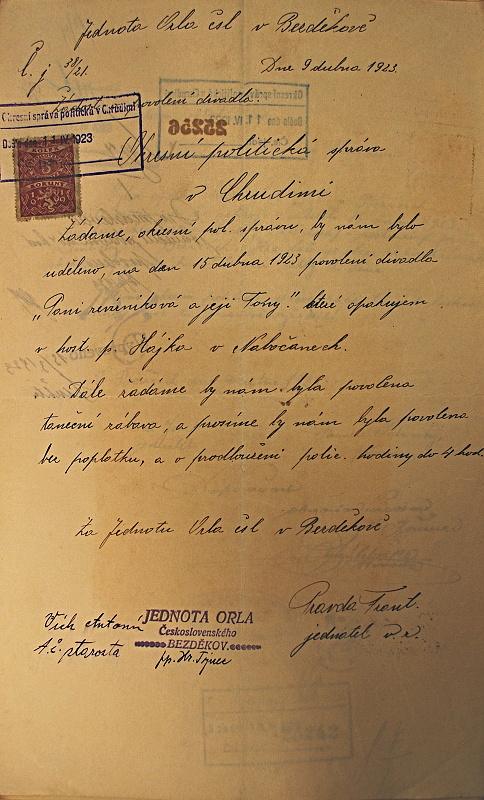 Jednota Orla čsl v Bezděkově
Č. j 38/21.
Dne 9 dubna 1923.
Žádost povolení divadla.
Okresní správa politická v Chrudimi
Došlo dne 11. IV. 1923
25236
KOLEK
5
KORUN
1919
Okresní politická správa
v Chrudimi
Žádáme, okresní pol. správu, by nám bylo
uděleno, na den 15 dubna 1923 povolení divadla
"Paní revírníková a její Tony." které opakujem
v host. p. Hájka v Nabočanech.
Dále žádáme by nám byla povolena
taneční zábava, a prosíme by nám byla povolena
bez poplatku, a o prodloužení polic. hodiny do 4 hod.
Za Jednotu Orla čsl v Bezděkově
Vích Antonín
t. č. starosta
JEDNOTA ORLA
Československého
BEZDĚKOV.
pp. Hr. Týnec
Pravda Frant.
jednatel v. r.